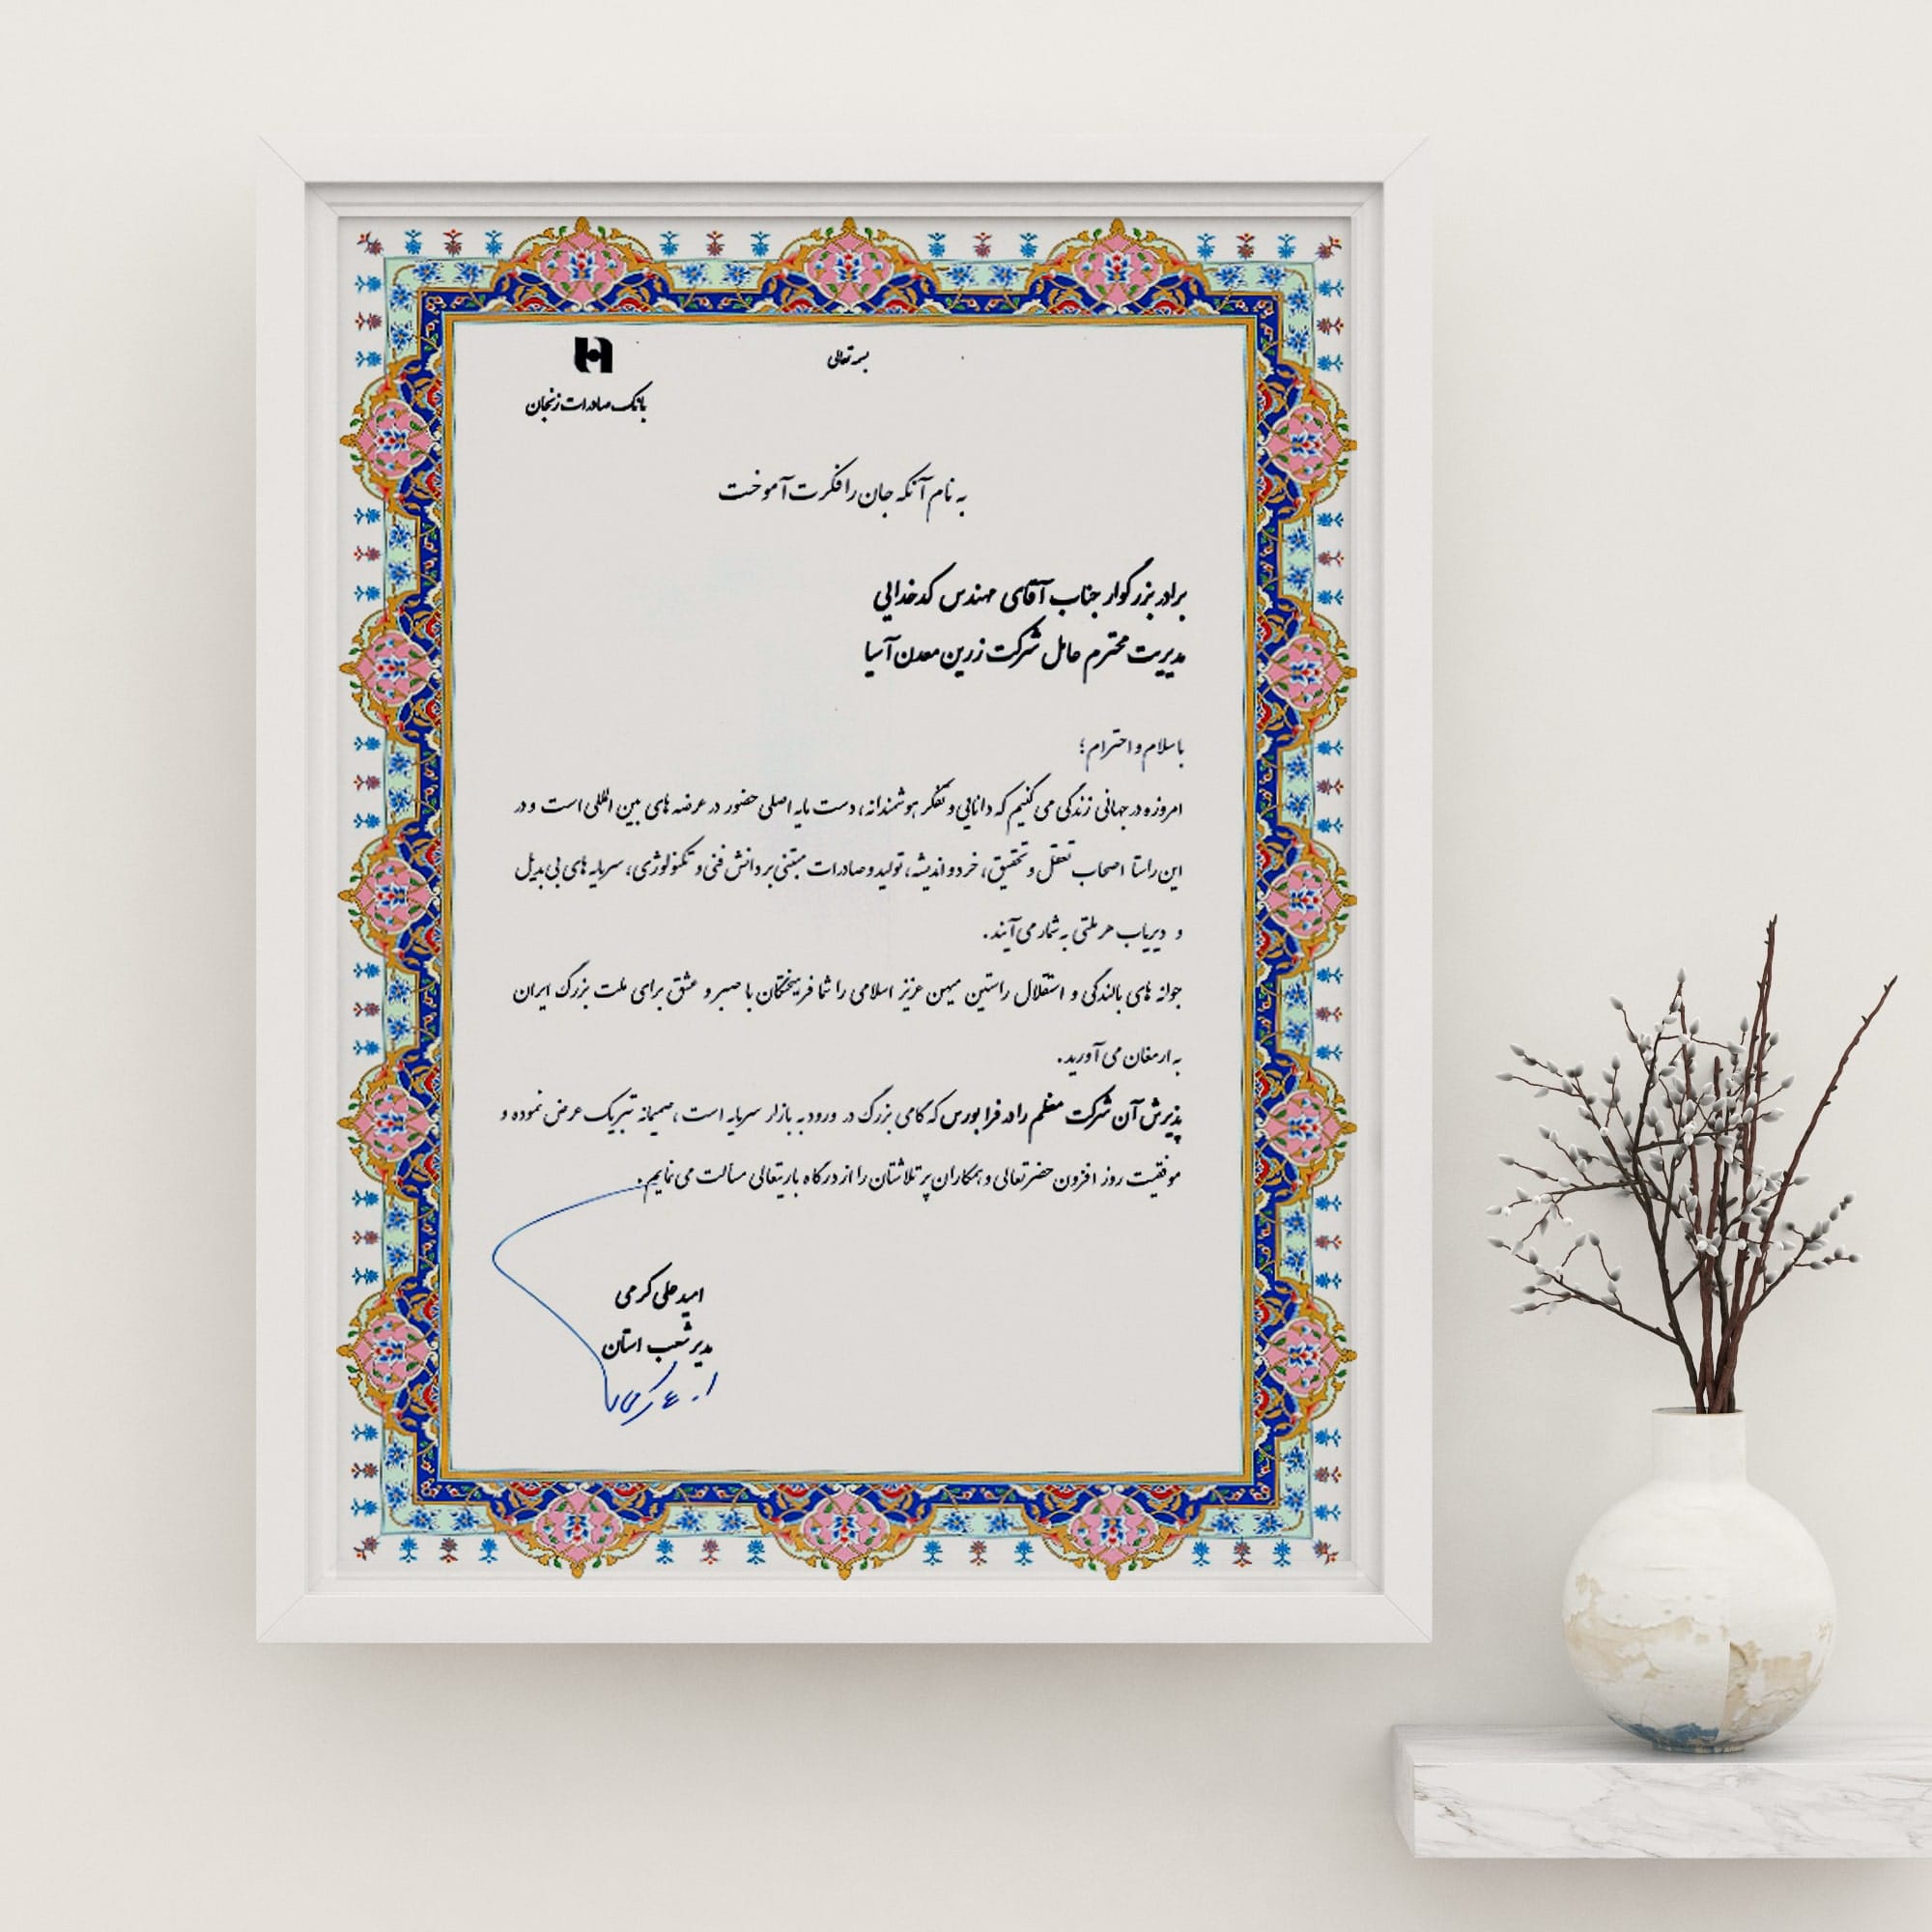 بسمه تعالی
بانک صادرات زنجان
به نام آنکه جان را فکرت آموخت
برادر بزرگوار جناب آقای مهندس کدخدایی
مدیریت محترم عامل شرکت زرین معدن آسیا
با سلام و احترام؛
امروزه در جهانی زندگی می کنیم که دانایی و تفکر هوشمندانه، دست مایه اصلی حضور در عرضه های بین المللی است و در
این راستا اصحاب تعقل و تحقیق، خرد و اندیشه، تولید و صادرات مبتنی بر دانش فنی و تکنولوژی، سرمایه های بی بدیل
و دیریاب هر ملتی به شمار می آیند.
جوانه های بالندگی و استقلال راستین میهن عزیز اسلامی را شما فرهیختگان با صبر و عشق برای ملت بزرگ ایران
به ارمغان می آورید.
پذیرش آن شرکت معظم را در فرابورس که گامی بزرگ در ورود به بازار سرمایه است، صمیمانه تبریک عرض نموده و
موفقیت روز افزون حضرتعالی و همکاران پر تلاشتان را از درگاه باریتعالی مسألت می نمایم.
امید علی کرمی
مدیر شعب استان